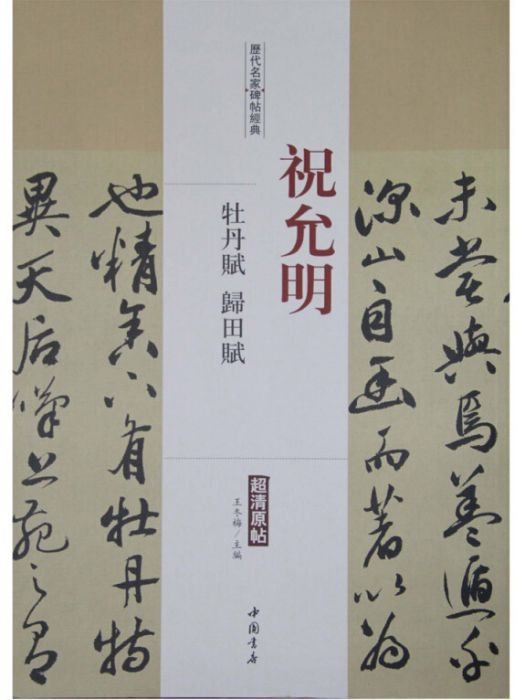 未嘗與焉蓋遁乎
深山自幽而著以為
歷代名家碑帖經典
祝允明
牡丹賦 歸田賦
超清原帖
王冬梅/主編
中国书店
也精舍下有牡丹特
異天后嘆上苑之有